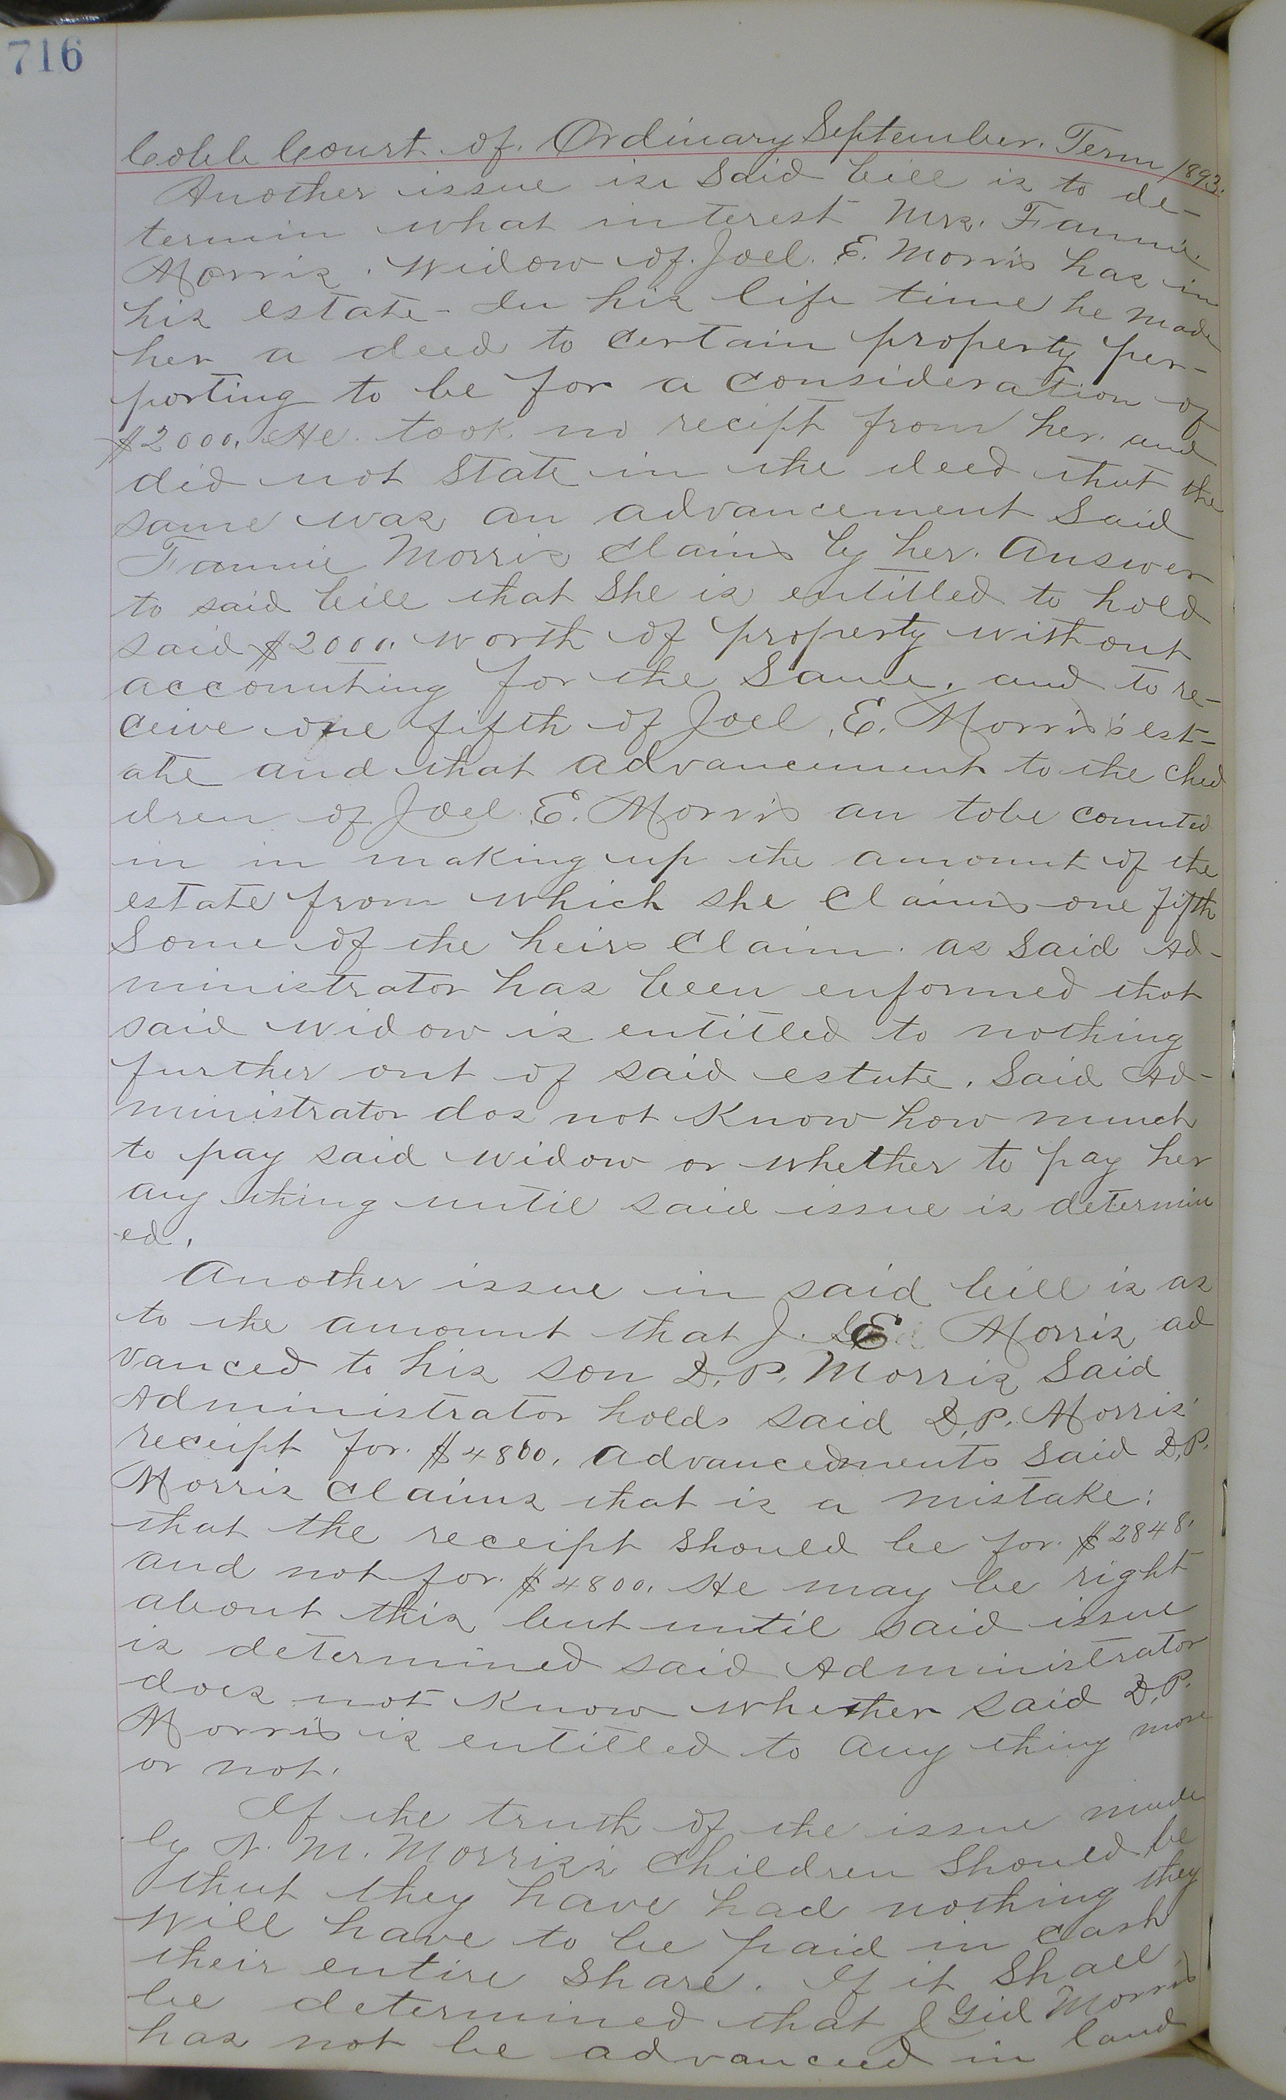 716
Cobb Court of Ordinary September Term 1893.
Another issue in said bill is to de-
termin what interest Mrs. Fannie
Morris. Widow of Joel. E. Morris has in
his estate - In his life time he made
her a deed to certain property per-
porting to be for a consideration of
$2000. He took no recipt from her and
did not State in the deed that the
same was an advancement Said
Fannie Morris claims by her answer
to said bill that She is entitled to hold
said $2000. worth of property without
accounting for the Same, and to re-
ceive one fifth of Joel. E. Morris's est-
ate and that advancement to the chil
dren of Joel E. Morris an tobe counted
in in making up the amount of the
estate from which she claims one fifth
Some of the heirs claim as Said Ad-
ministrator has been enformed that
said widow is entitled to nothing
further out of said estate. Said Ad-
ministrator dos not Know how much
to pay said widow or whether to pay her
any thing until said issue is determin
ed.
Another issue in said bill is as
to the amount that J. E. Morris ad
vanced to his son D. P. Morris Said
Administrator holds said D. P. Morris'
receipt for $4800. advancements Said D. P.
Morris claims that is a mistake:
that the receipt should be for $2848.
and not for $4800. He may be right
about this but until said issue
is determined said Administrator
does not Know whether said D. P.
Morris is entitled to any thing more
or not.
If the truth of the issue made
by N. M. Morris's children should be
that they have had nothing they
will have to be paid in cash
their entire Share. If it Shall
be determined that J Gid Morris
has not be advanced in land